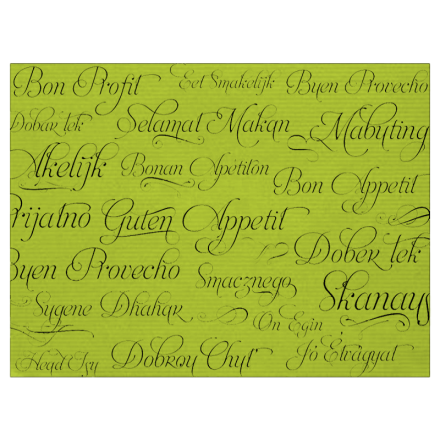 Bon Profit Eet Smakelijk Buen Provecho
Dobar tek Selamat Makan Mabuting
Alkelijk Bonan Apetiton Bon Appetit
Prijatno Guten Appetit
Dober tek
Buen Provecho Smacznego Skanaus
On Egin
Dobrou Chut Jó Étvágyat